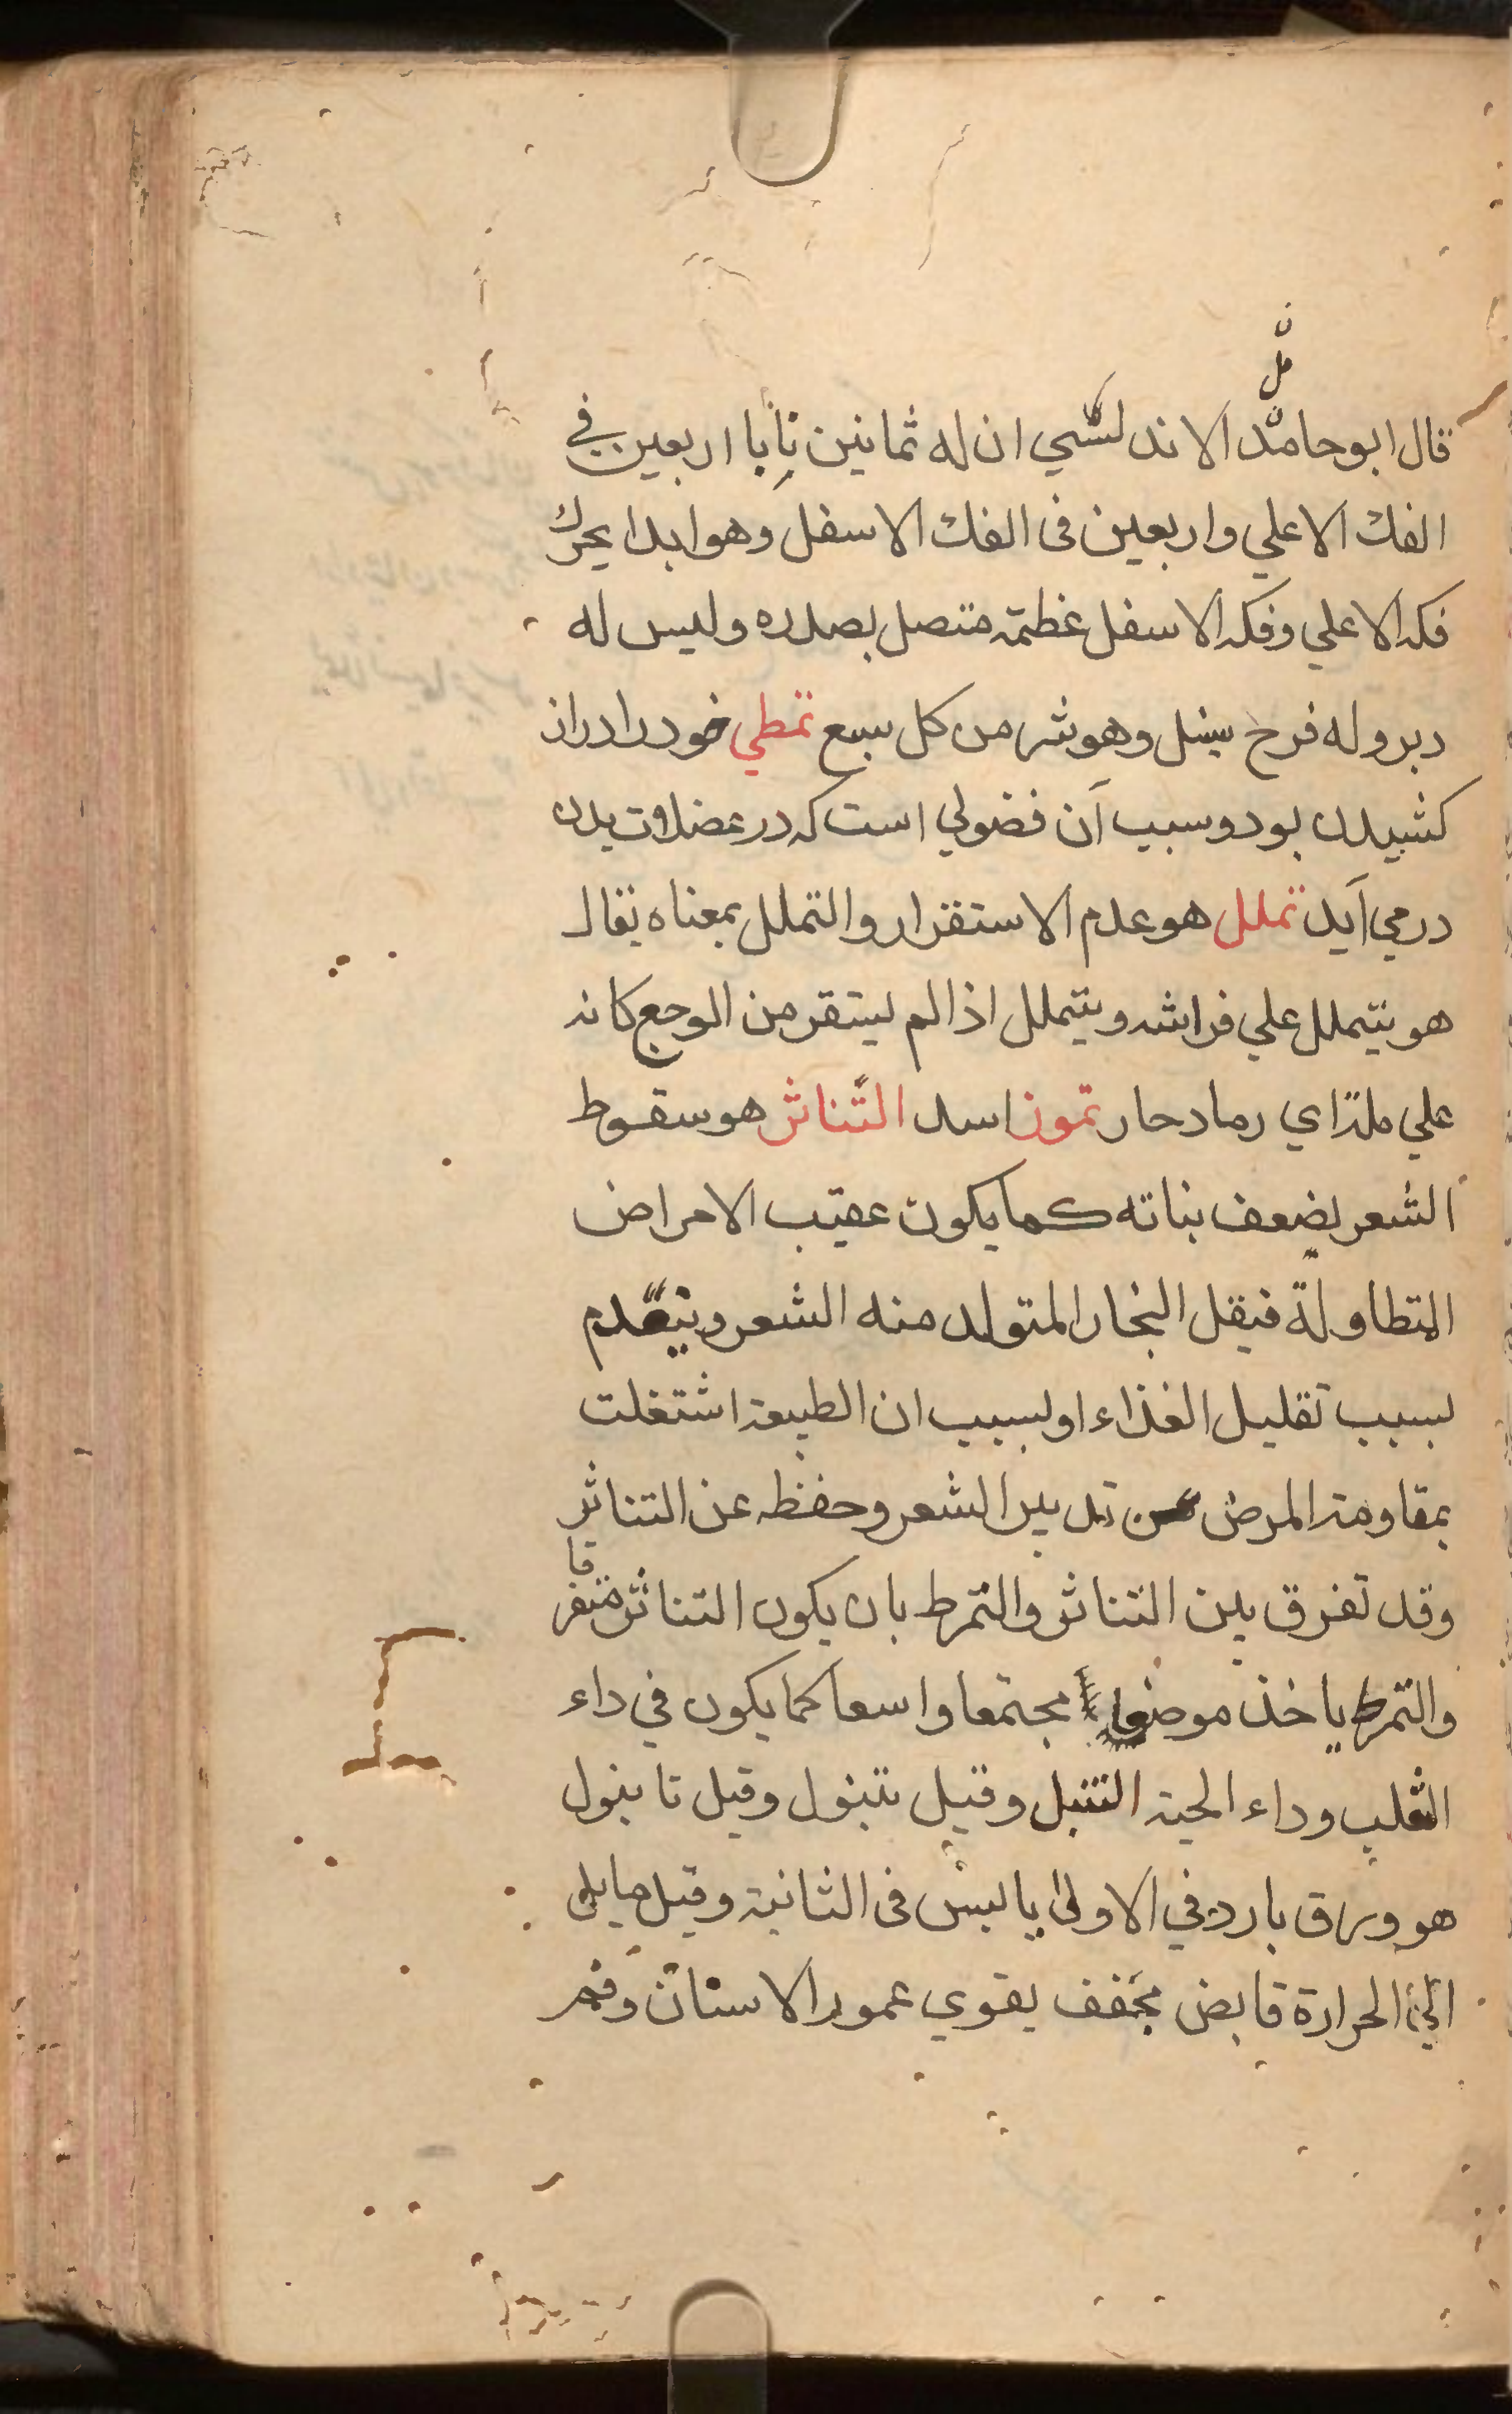 قال ابو حامد الاندلسي ان له ثمانين نابا اربعين في
الفك الاعلي واربعين فى الفك الاسفل وهو ابدا يحرك
فكه الاعلي وفكه الاسفل عظمة متصل بصدره وليس له
دبر وله فرخ بنسل وهو شر من كل سبع تمطي خود را دراز
كشيدن بود وسبب آن فضولي است كه در عضلات بدن
در مي آيد تململ هو عدم الاستقرار والتململ بمعناه يقال
هو يتململ علي فراشه ويتململ اذا لم يستقر من الوجع كانه
علي ملة اي رماد حار تموز اسد التناثر هو سقوط
الشعر لضعف بناته كما يكون عقيب الامراض
المتطاولة فيقل البخار المتولد منه الشعر وينعدم
بسبب تقليل الغذاء او لسبب ان الطبيعة اشتغلت
بمقاومة المرض عن تدبير الشعر وحفظه عن التناثر
وقد تفرق بين التناثر والتمرط بان يكون التناثر متفرقا
والتمرط ياخذ موضعا مجتمعا واسعا كما يكون في داء
الثعلب وداء الحية التنبل وقيل تنبول وقيل تانبول
هو ورق بارد في الاولى يابس فى الثانية وقيل مايل
الى الحرارة قابض مجفف يقوي عمور الاسنان وفم